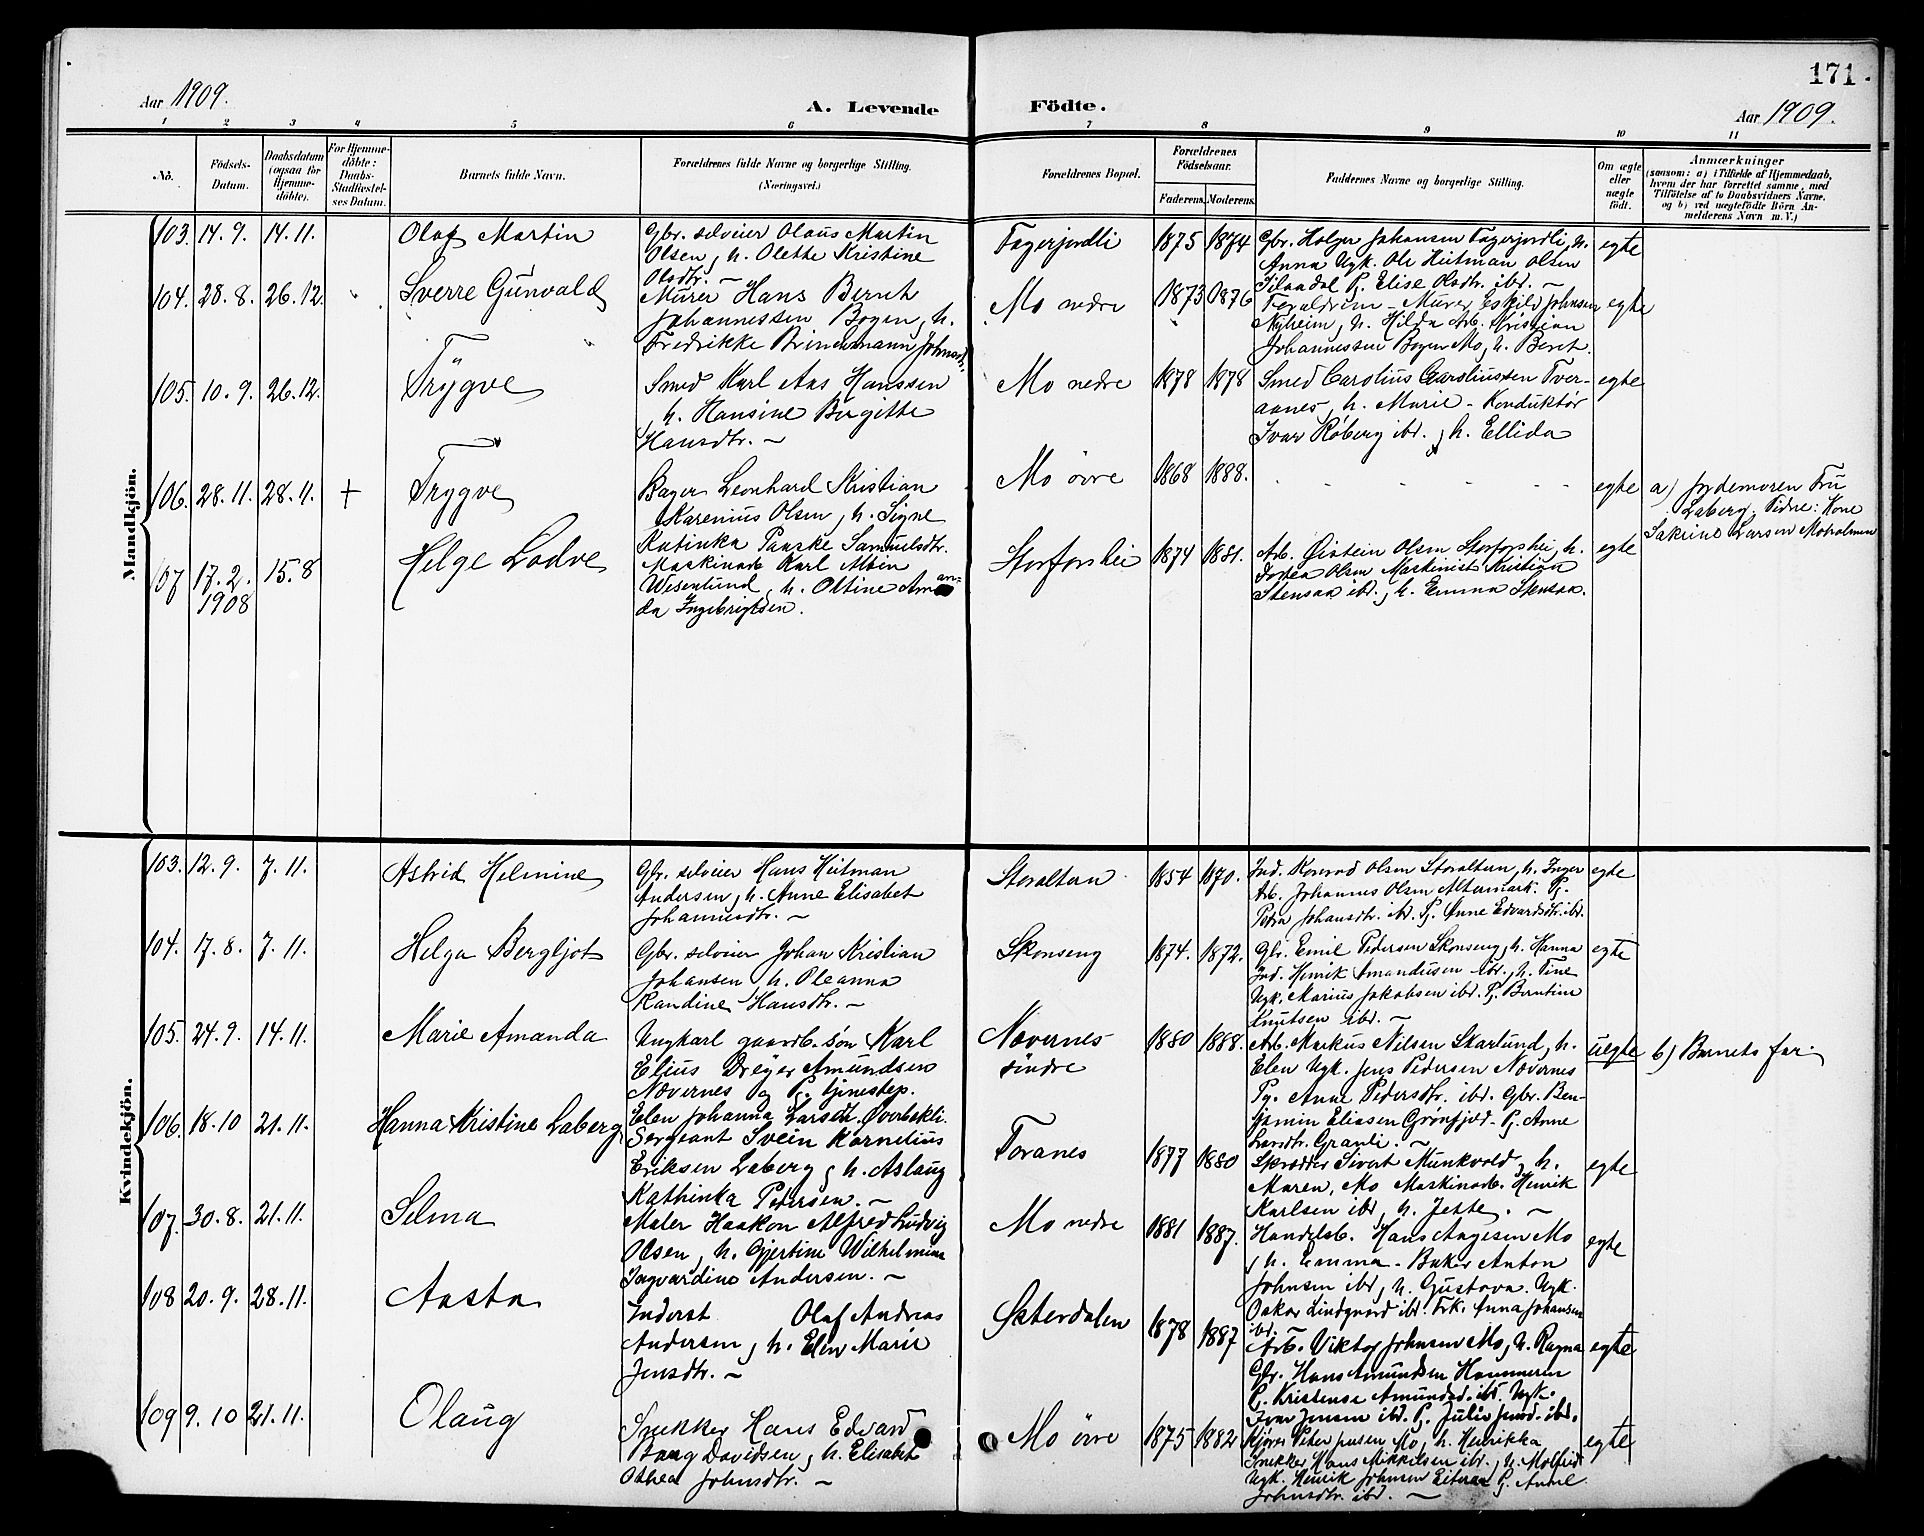 171.
Aar 1909.
A. Levende
Födte.
Aar 1909.
1 2 3 4 5 6 7 8 9 10 11
No.
Födsels-
Datum.
Daabsdatum
(ogsaa for
Hjemme-
döbte).
For Hjemme-
döbte:
Daabs-
Stadfæstel-
ses Datum.
Barnets fulde Navn.
Forældrenes fulde Navne og borgerlige Stilling.
(Næringsvei.)
Forældrenes Bopæl.
Forældrenes
Födselsaar.
Faderens. Moderens.
Faddernes Navne og borgerlige Stilling.
Om ægte
eller
uægte
födt.
Anmærkninger
(saasom: a) i Tilfælde af Hjemmedaab,
hvem der har forrettet samme, med
Tilföielse af to Daabsvidners Navne,
og b) ved uægtefödte Börn An-
melderens Navn m. V.)
Mandkjön.
103. 14. 9. 14. 11.
Olaf Martin
Gbr. selveier Olaus Martin
Olsen, h. Olette Kristine
Olsdtr. –
Fagerjordli 1875 1874
Gbr. Holger Johansen Fagerjordli, h.
Anna Ugk. Ole Hutman Olsen
Tilaadal P. Elise Olsdtr. ibr. –
egte
104. 28. 8. 26. 12.
Sverre Gunvald
Murer Hans Bernt
Johannessen Bogen, h.
Fredrikke Brinchmann Johnsdtr.
Mo nedre 1873 1876
Forældrene – Murer Eskild Johnsen
Nyheim, h. Hilda Arb. Kristian
Johannessen Bogen Mo, h. Berit.
egte
105. 10. 9. 26. 12.
Trygve
Smed Karl Aas Hanssen
, h. Hansine Birgitte
Hansdtr. –
Mo nedre 1878 1878
Smed Carolius Caroliussen Tver-
aanes, h. Marie – Konduktör
Ivar Röberg ibr., h. Ellida
egte
106. 28. 11. 28. 11. +
Trygve
Bager Leonhard Kristian
Karenius Olsen, h. Signe
Katinka Paaske Samuelsdtr.
Mo övre 1868 1888.
egte
a) Jordemoren Fru
Laberg, Vidne: Kone
Sakrine Larsen Moholmen
107 17. 2. 1908 15. 8
Helge Lodve
Maskinarb Karl Albin
Wesenlund, h. Oltine Aman-
da Ingebrigtsen.
Storforshei 1874 1881.
Arb. Øistein Olsen Storforshei, h.
Dorea Olsen Maskinist Kristian
Stensaa ibr., h. Emma Stensaa.
egte
Kvindekjön.
103. 12. 9. 7. 11.
Astrid Helmine
Gbr. selveier Hans Hutman
Andersen, h. Anne Elisabet
Johannesdtr. –
Storaltan 1854 1870.
Ind. Konrad Olsen Storaltan, h. Inger
Arb. Johannes Olsen Altermark. P.
Petra Johansdtr. ibr. P. Anne Edvardsdtr. ibr.
egte
104. 17. 8. 7. 11.
Helga Bergljot
Gbr. selveier Johan Kristian
Johansen h. Oleanna
Randine Hansdtr. –
Skonseng 1874. 1872.
Gbr. Emil Pedersen Skonseng, h. Hanna
Ind. Henrik Amandusen ibr., h. Tine
Ugk. Marius Jakobsen ibr. P. Berntine
Knutsen ibr. –
egte
105. 24. 9. 14. 11.
Marie Amanda
Ungkarl gaardb. sön Karl
Elius Dreyer Amundsen
Nævernes og P. tjenestep.
Elen Johanna Larsdtr. Överbakli.
Nævernes
söndre 1880 1888.
Arb. Markus Nilsen Skarlund, h.
Elen Ugk. Jens Pedersen Nævernes
Pg. Anne Pedersdtr. ibr. Gbr. Ben-
jamin Eliasen Grönfjed – P. Anne
Larsdtr. Granli. –
uegte
b) Barnets far.
106. 18. 10 21. 11.
Hanna Kristine Laberg
Sergeant Svein Kornelius
Eriksen Laberg, h. Aslaug
Kathinka Pedersen. –
Toranes 1877 1880
Skrædder Sivert Munkvold, h.
Maren, Mo Maskinarb. Henrik
Karlsen ibr, h. Jette. –
egte
107. 30. 8. 21. 11.
Selma
Maler Haakon Alfred Ludvig
Olsen, h. Gjertine Wilhelmine
Ingvardine Andersen. –
Mo nedre 1881 1887.
Handelsb. Hans Angesen Mo
, h. Emma – Baker Anton
Johnsen ibr, h. Gustava. Ugk.
Oskar Lindquard ibr. Frk. Anna Johansen
ibr. –
egte
108 20. 9. 28. 11.
Aasta
Inderst Olaf Andreas
Andersen, h. Elen Marie
Jensdtr. –
Sæterdalen 1878 1887
Arb. Viktor Johnsen Mo, h. Ragna
Gbr. Hans Amundsen Hammeren
P. Kristense Amundsd. ibr. Ugk.
Ivar Jensen ibr. P. Julie Jensd. ibr.
egte
109 9. 10 21. 11.
Olaug
Snekker Hans Edvard
Baag Davidsen, h. Elisabet
Othea Johnsdtr. –
Mo övre 1875 1882
Kjörer Peter Jensen Mo, h. Henrikka
Snekker Hans Mikkelsen ibr., h. Molfrid
Ugk. Henrik Johnsen Eiteraa P. Anne
Johnsdtr. ibr. –
egte